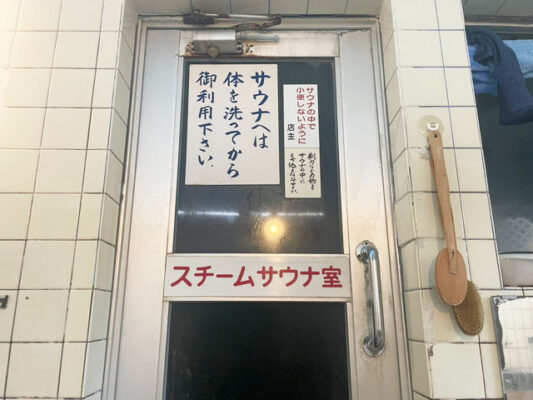 サウナへは
体を洗ってから
御利用下さい。
サウナの中で
小便しないように
店主
剃刀など刃物を
サウナの中に
スチームサウナ室